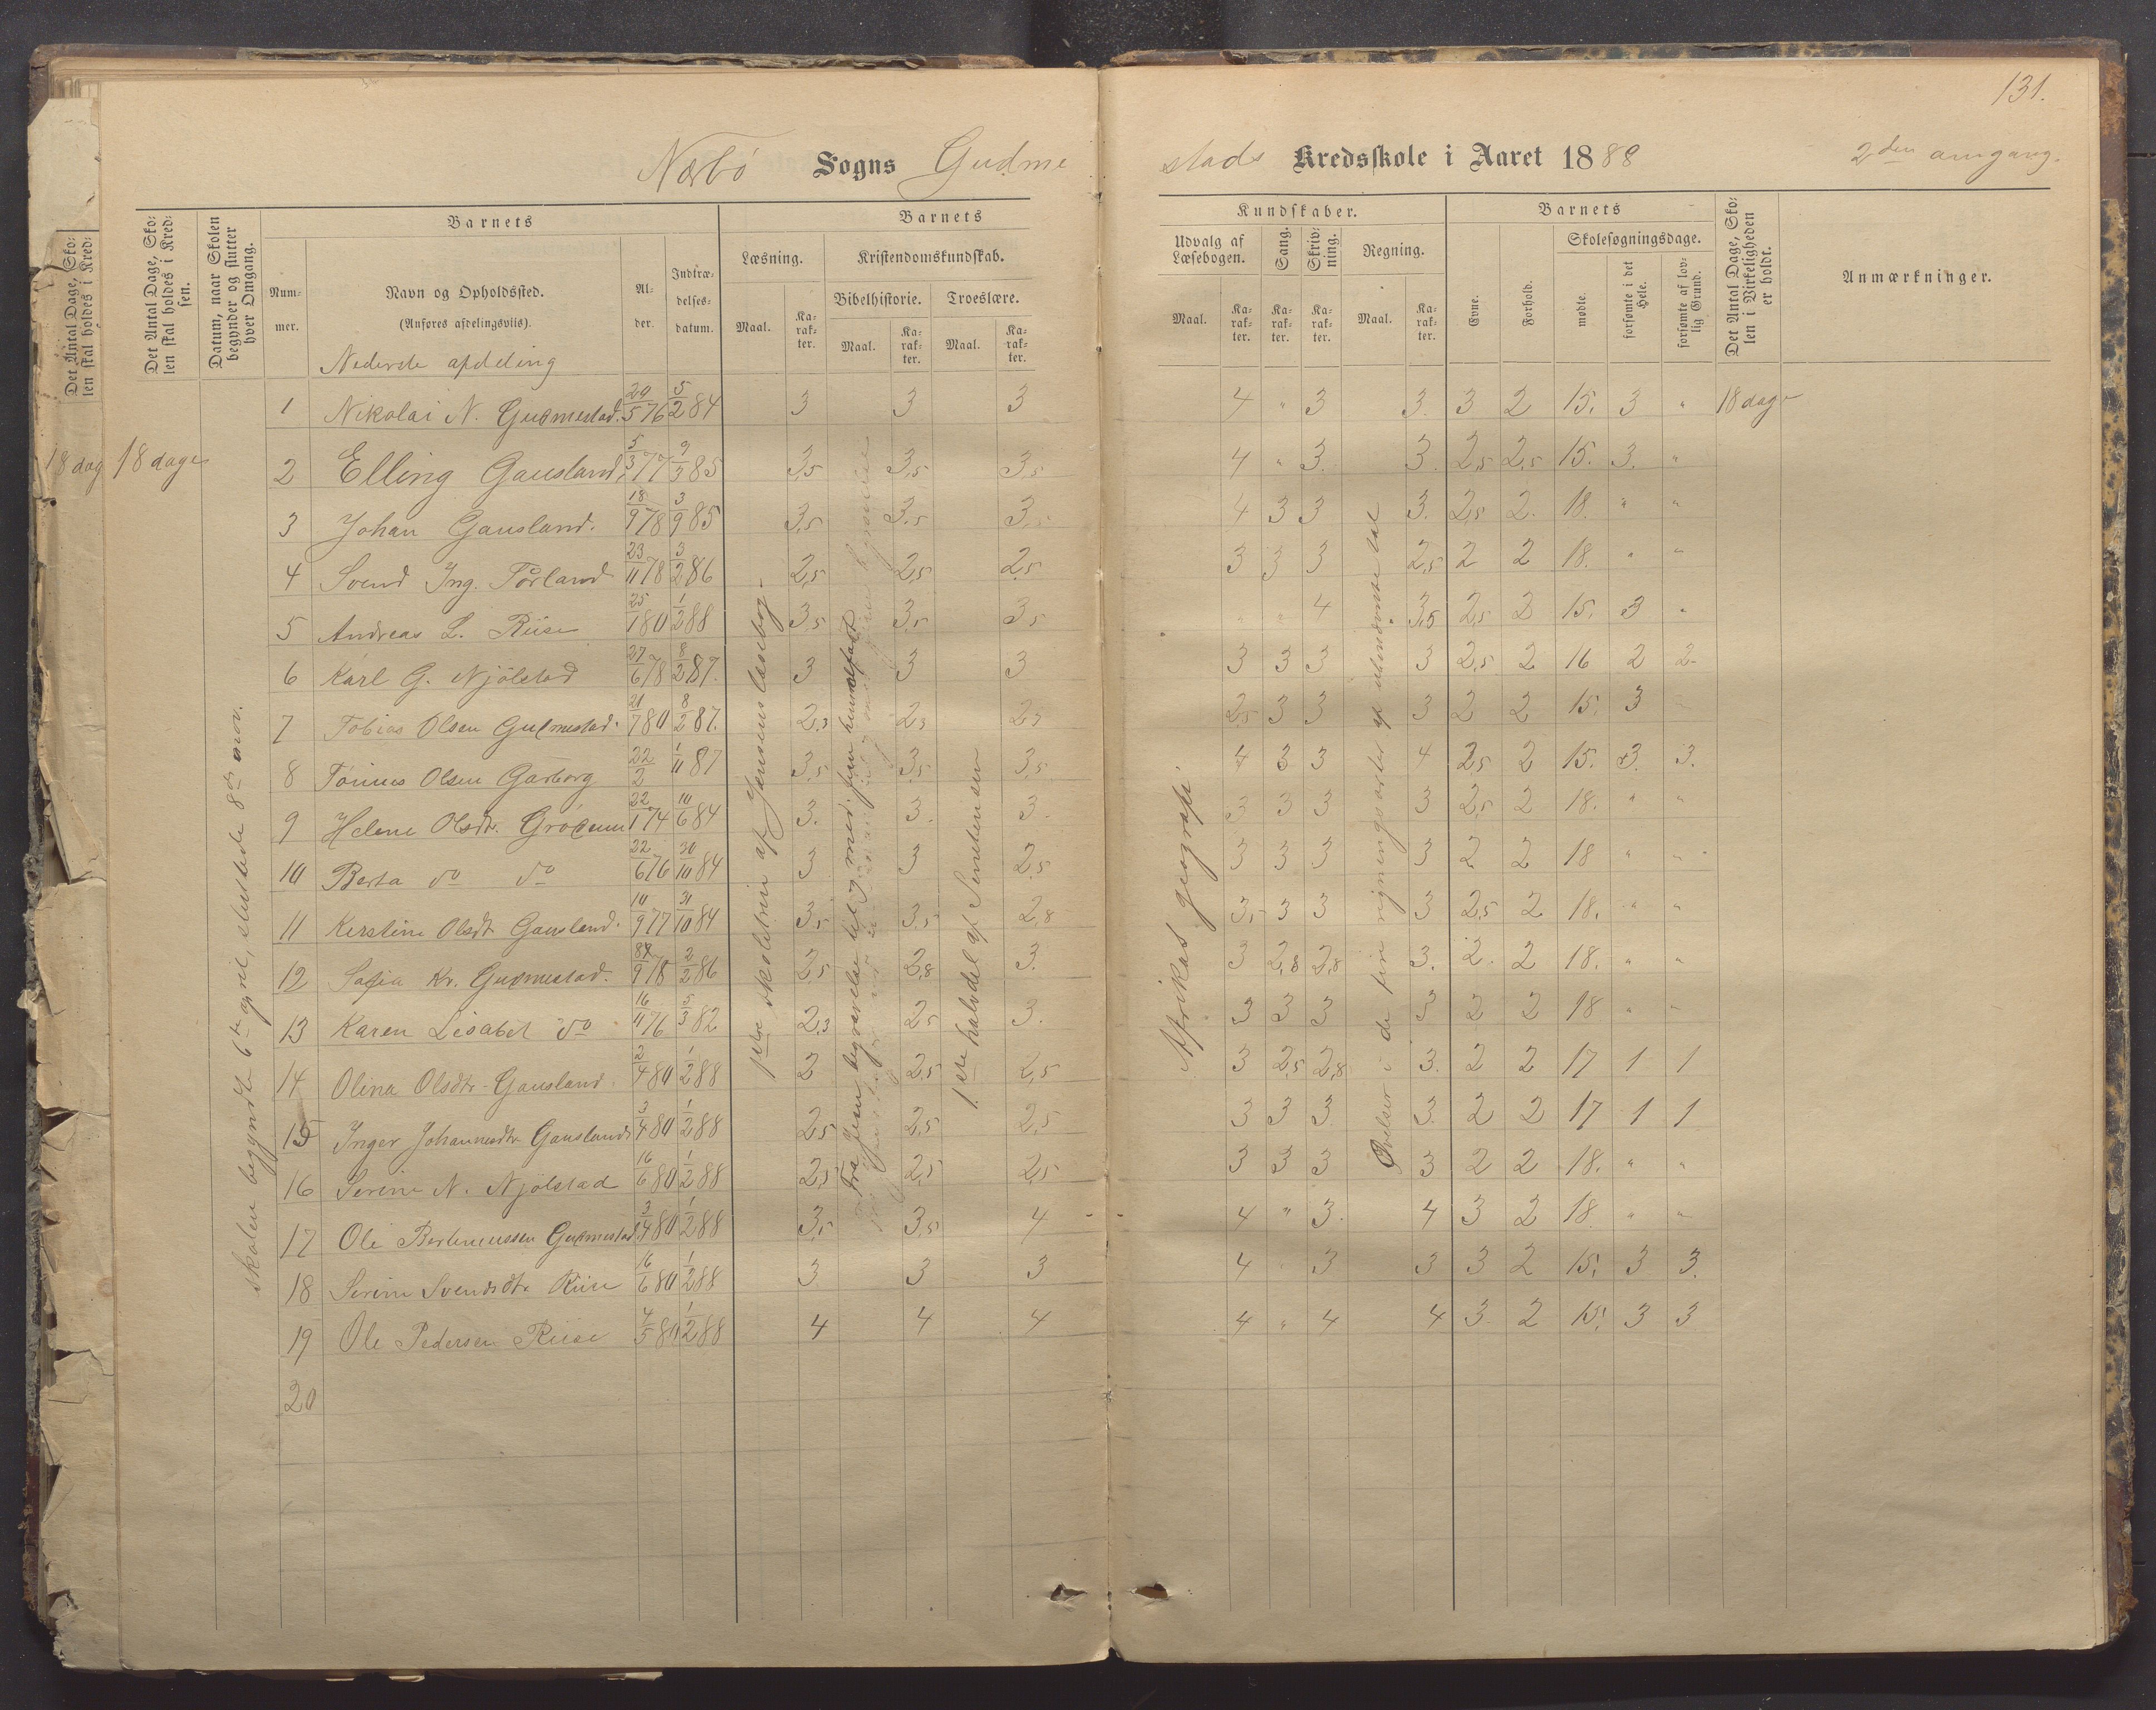 131.
Nærbø Sogns Gudme stads Kredsskole i Aaret 1888 2den omgang.
Det Antal Dage, Skolen skal holdes i Kredsen.
Datum, naar Skolen begynder og slutter hver Omgang.
Barnets
Nummer.
Navn og Opholdssted.
(Anføres afdelingsviis).
Alder.
Indtrædelsesdatum.
Barnets Kundskaber.
Læsning.
Maal.
Karakter.
Kristendomskundskab.
Bibelhistorie.
Maal.
Karakter.
Troeslære.
Maal.
Karakter.
Udvalg af Læsebogen.
Maal.
Karakter.
Sang.
Karakter.
Skrivning.
Karakter.
Regning.
Maal.
Karakter.
Barnets
Evne.
Forhold.
Skolesøgningsdage.
mødte.
forsømte i det Hele.
forsømte af lovlig Grund.
Det Antal Dage, Skolen i Virkeligheden er holdt.
Anmærkninger.
Det Antal Dage, Skolen skal holdes i Kred-
18 dag
18 dage
skolen begyndte 6te april, sluttede 8de
Nederste afdeling
1 Nikolai N. Gudmestad. 20/5 76 5/2 84 3 3 3 4 " 3 3. 3 2 15. 3 " 18 dage
2 Elling Gausland. 5/3 77 9/3 85 3,5 3,5 3,5 4 " 3. 3. 2,5 2,5 15. 3. "
3 Johan Gausland. 18/9 78 3/9 85 3,5 3,5 3,5 4 3 3 3. 2,5 2. 18. " "
4 Svend Ing. Torland 23/11 78 3/2 86 2,5 2,5 2,5 3 3 3 2,5 2 2 18. " "
5 Andreas L. Riise 25/1 80 1/2 88 3,5 3,5 3,5 " " 4 3,5 2,5 2 15. 3 "
6 Karl G. Njölstad 27/6 78 8/2 87. 3 3 3 3 3 3 3 2,5 2 16 2 2
7 Tobias Olsen Gudmestad. 21/7 80 8/2 87. 2,3 2,3 2,3 2,5 3 3 3 2 2 15. 3
8 Tönnes Olsen Garborg 22/2 1/11 87 3,5 3,5 3,5 4 3 3 4 2,5 2 15. 3. 3.
9 Helene Olsdtr. Grödeum 22/1 74 10/6 84 3. 3. 3. 3 3 3 3 2,5 2 18. " "
10 Berta do do 22/6 76 30/10 84 3 3 2,5 3 3 3 3 2 2 18 " "
11 Kerstine Olsdt Gausland. 10/9 77 31/10 84 3,5 3,5 2,8 3,5 3 3 3 2,5 2 18. " "
12 Sofia Kr. Gudmestad. 9 78 2/2 86 2,5 2,8 3. 3 2,8 2,8 3. 2. 2 18. " "
13 Karen Lisabet do 16/11 76 5/3 82 2,3 2,5 3. 3 3 3 3 2 2 18 " "
14 Olina Olsdtr. Gausland. 2/4 80 1/2 88 2 2,5 2,5 3 2,5 2,8 3. 2 2 17 1 1
15 Inger Johannesdtr. Gausland 3/4 80 1/2 88 2,5 2,5 2,5 3 3 3 3. 2 2 17 1 1
16 Serine N. Njölstad 16/6 80 1/2 88 2,5 2,5 2,5 3 3 3 3 2 2 18. " "
17 Ole Gudmestad 3/4 80 1/2 88 3,5 3,5 4 4 " 3. 4 3 2 18. " "
18 Serine Svendsdtr Riise 16/6 80 1/2 88 3 3 3 4 " 3 3 3 2 15. 3 3.
19 Ole Pedersen Riise 4/5 80 1/2 88 4 4 4 4 " 4 4 3. 2 15. 3 3
20
skoletrin af Jensens læsebog.
Fra Jesu begravelse til
1ere halvdel af
Afrikas geografi.
Øvelser i de fire regningsarter af ubenævnte tal